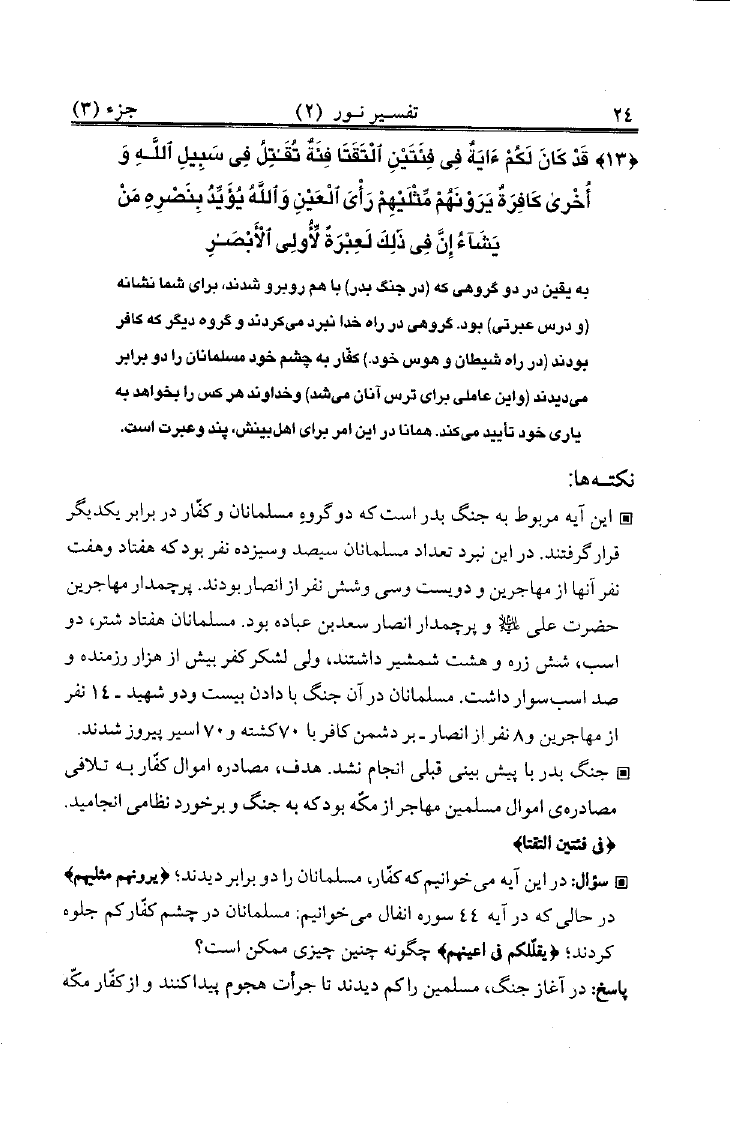 ٢٤ تفسیر نور (٢) جزء (٣)
﴿١٣﴾ قَدْ كَانَ لَكُمْ ءَايَةٌ فِى فِئَتَيْنِ ٱلْتَقَتَا فِئَةٌ تُقَٰتِلُ فِى سَبِيلِ ٱللَّهِ وَ
أُخْرَىٰ كَافِرَةٌ يَرَوْنَهُمْ مِّثْلَيْهِمْ رَأْىَ ٱلْعَيْنِ وَٱللَّهُ يُؤَيِّدُ بِنَصْرِهِ مَنْ
يَشَآءُ إِنَّ فِى ذَٰلِكَ لَعِبْرَةً لِّأُولِى ٱلْأَبْصَٰرِ
به یقین در دو گروهی که (در جنگ بدر) با هم روبرو شدند، برای شما نشانه
(و درس عبرتی) بود. گروهی در راه خدا نبرد می‌کردند و گروه دیگر که کافر
بودند (در راه شیطان و هوس خود.) کفّار به چشم خود مسلمانان را دو برابر
می‌دیدند (واین عاملی برای ترس آنان می‌شد) وخداوند هر کس را بخواهد به
یاری خود تأیید می‌کند. همانا در این امر برای اهل‌بینش، پند وعبرت است.
نکته‌ها:
▣ این آیه مربوط به جنگ بدر است که دو گروهِ مسلمانان و کفّار در برابر یکدیگر
قرار گرفتند. در این نبرد تعداد مسلمانان سیصد وسیزده نفر بود که هفتاد وهفت
نفر آنها از مهاجرین و دویست وسی وشش نفر از انصار بودند. پرچمدار مهاجرین
حضرت علی علیه‌السلام و پرچمدار انصار سعدبن عباده بود. مسلمانان هفتاد شتر، دو
اسب، شش زره و هشت شمشیر داشتند، ولی لشکر کفر بیش از هزار رزمنده و
صد اسب‌سوار داشت. مسلمانان در آن جنگ با دادن بیست ودو شهید ـ ١٤ نفر
از مهاجرین و٨ نفر از انصار ـ بر دشمن کافر با ٧٠ کشته و ٧٠ اسیر پیروز شدند.
▣ جنگ بدر با پیش بینی قبلی انجام نشد. هدف، مصادره اموال کفّار به تلافی
مصادره‌ی اموال مسلمین مهاجر از مکّه بود که به جنگ و برخورد نظامی انجامید.
﴿فی فئتین التقتا﴾
▣ سؤال: در این آیه می‌خوانیم که کفّار، مسلمانان را دو برابر دیدند؛ ﴿یرونهم مثلیهم﴾
در حالی که در آیه ٤٤ سوره انفال می‌خوانیم: مسلمانان در چشم کفّار کم جلوه
کردند؛ ﴿یقلّلکم فی اعینهم﴾ چگونه چنین چیزی ممکن است؟
پاسخ: در آغاز جنگ، مسلمین را کم دیدند تا جرأت هجوم پیدا کنند و از کفّار مکّه